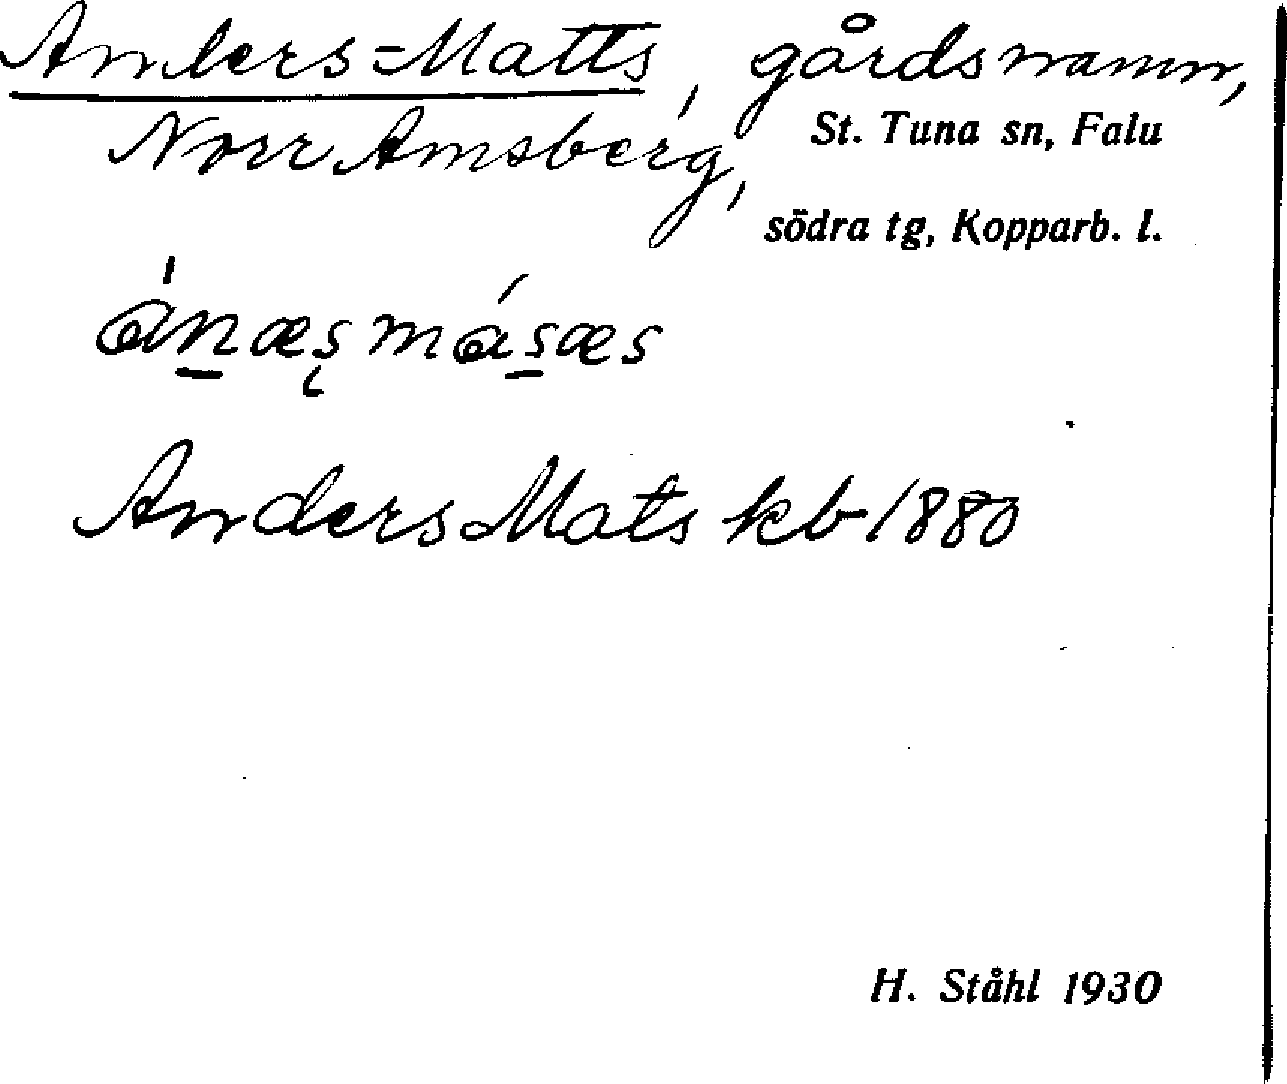 Anders-Matts, gårdsnamn,
Norr Amsberg, St. Tuna sn, Falu
södra tg, Kopparb. l.
ánæsmásæs
Anders Mats kb 1880
H. Ståhl 1930